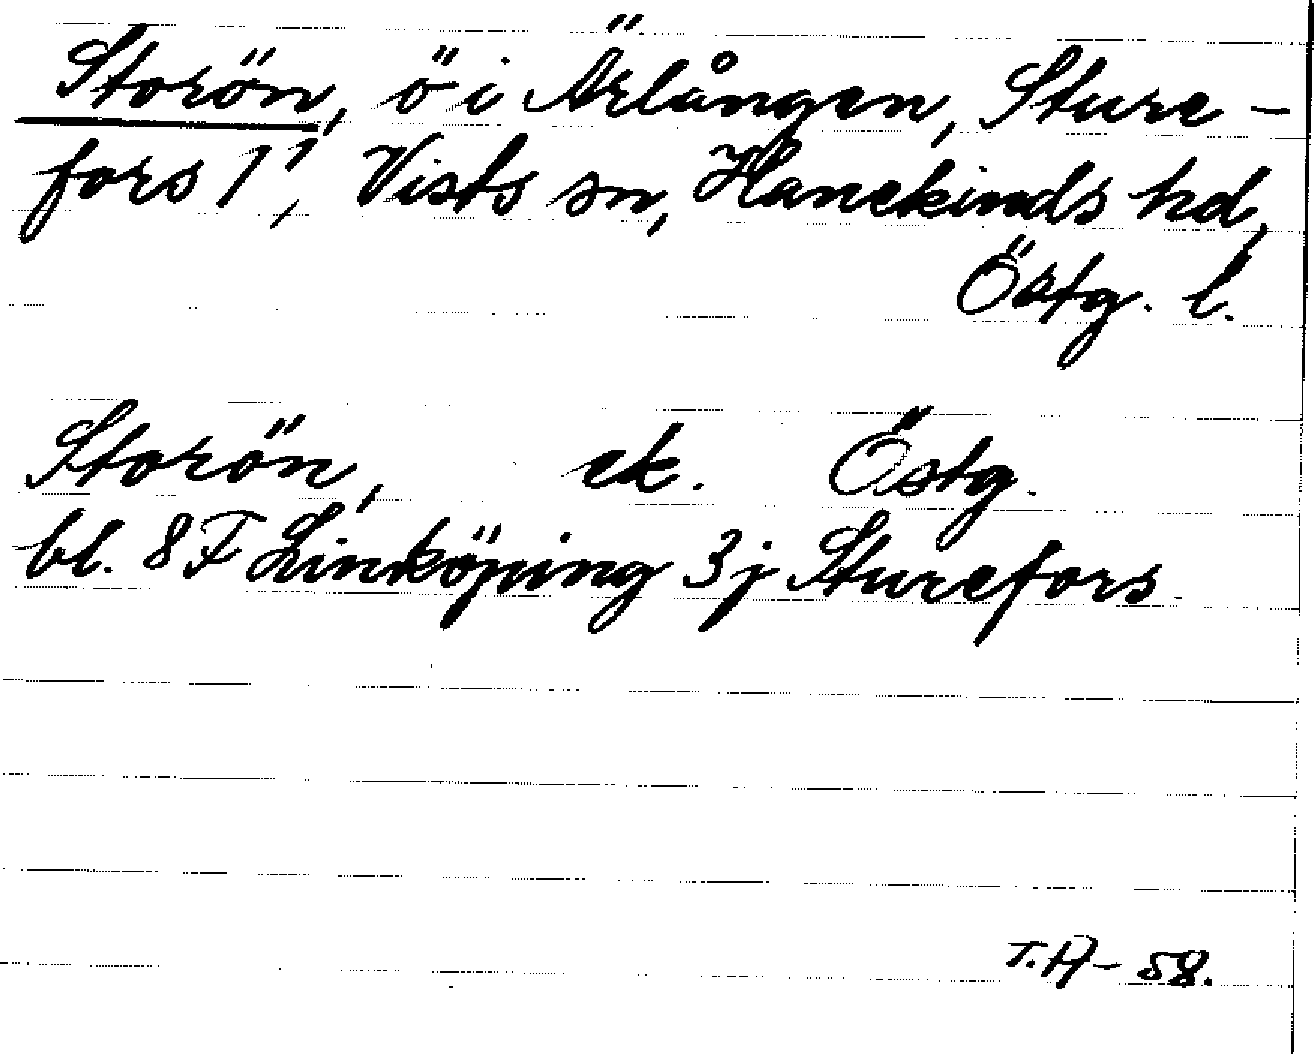 Storön, ö i Ärlången, Sture-
fors 1¹, Vists sn, Hanekinds hd,
Östg. l.
Storön, ek. Östg.
bl. 8F Linköping 3j Sturefors
T.A-58.